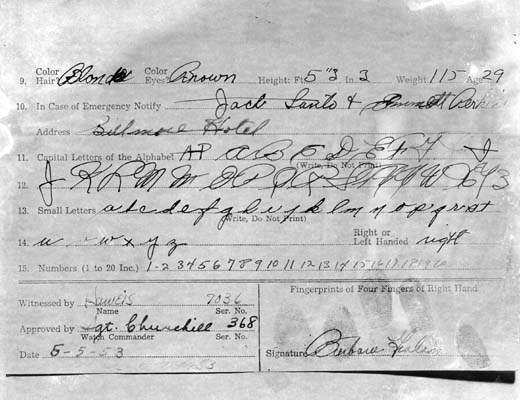 9. Color Hair: Blonde Color Eyes: Brown Height: Ft. 5"3 In. 3 Weight 115 Age 29
10. In Case of Emergency Notify Jack Santo & Emmett Perkins
Address Biltmore Hotel
11. Capital Letters of the Alphabet A B C D E F
(Write, Do Not Print)
12. J K L M
13. Small Letters a b c d e f g h i j k l m n o p q r s t
(Write, Do Not Print)
14. u w x y z Right or Left Handed right
15. Numbers (1 to 20 Inc.) 1-2 3 4 5 6 7 8 9 10 11 12 13 14 15 16 17 18 19 20
Fingerprints of Four Fingers of Right Hand
Witnessed by 7036
Name Ser. No.
Approved by Sgt. Churchill 368
Watch Commander Ser. No.
Date 5-5-53
Signature Barbara Graham